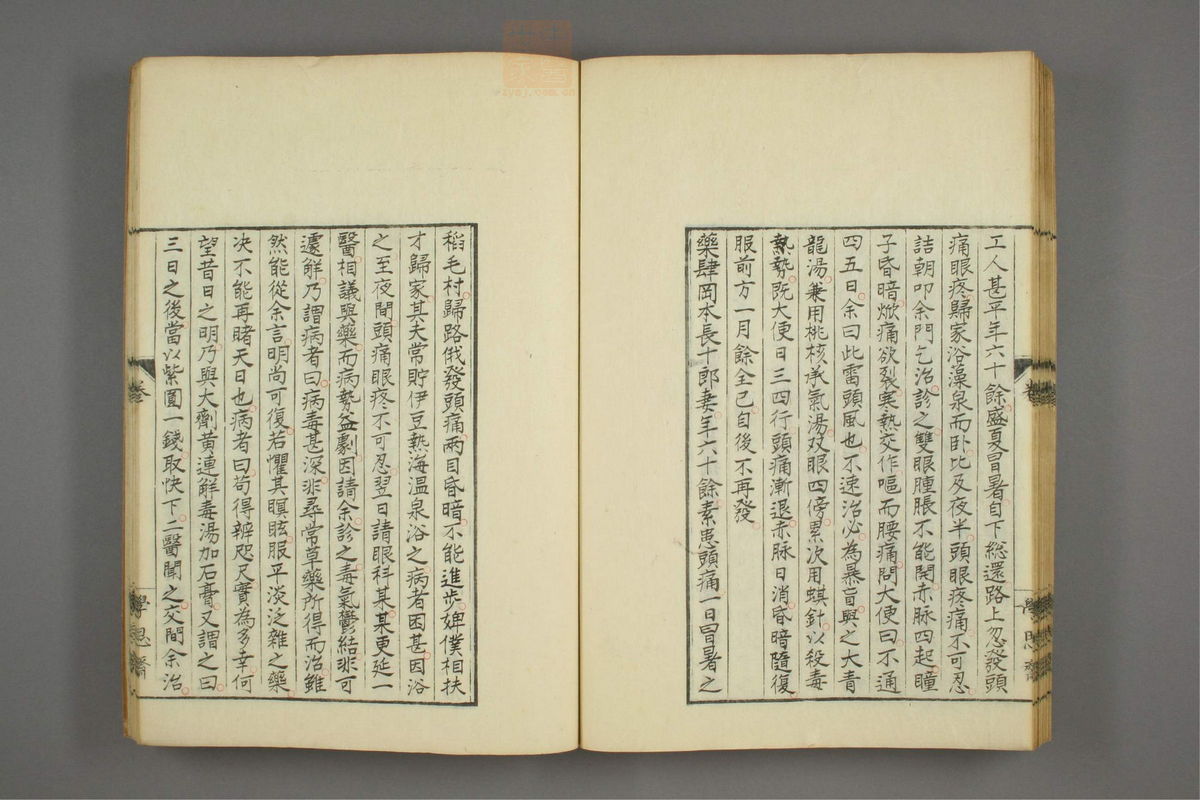 工人甚平年六十餘盛夏冒暑自下総還路上忽發頭
痛眼疼歸家浴藻泉而卧比及夜半頭眼疼痛不可忍
詰朝叩余門乞治診之雙眼腫脹不能開赤脉四起瞳
子昏暗焮痛欲裂寒熱交作嘔而腰痛問大便曰不通
四五日余曰此雷頭風也不速治必為暴盲與之大青
龍湯兼用桃核承氣湯双眼四傍累次用蜞針以殺毒
熱勢既大便日三四行頭痛漸退赤脉日消昏暗隨復
服前方一月餘全已自後不再發
藥肆岡本長十郎妻年六十餘素患頭痛一日冒暑之
稻毛村歸路俄發頭痛兩目昏暗不能進步婢僕相扶
才歸家其夫常貯伊豆熱海溫泉浴之病者困甚因浴
之至夜間頭痛眼疼不可忍翌日請眼科某某更延一
醫相議與藥而病勢益劇因請余診之毒氣鬱結非可
遽解乃謂病者曰病毒甚深非尋常草藥所得而治雖
然能從余言明尚可復若懼其瞑眩服平淡泛雜之藥
决不能再睹天日也病者曰苟得辨咫尺實為多幸何
望昔日之明乃與大劑黄連解毒湯加石膏又謂之曰
三日之後當以紫圓一錢取快下二醫聞之交間余治
卷
學思齋